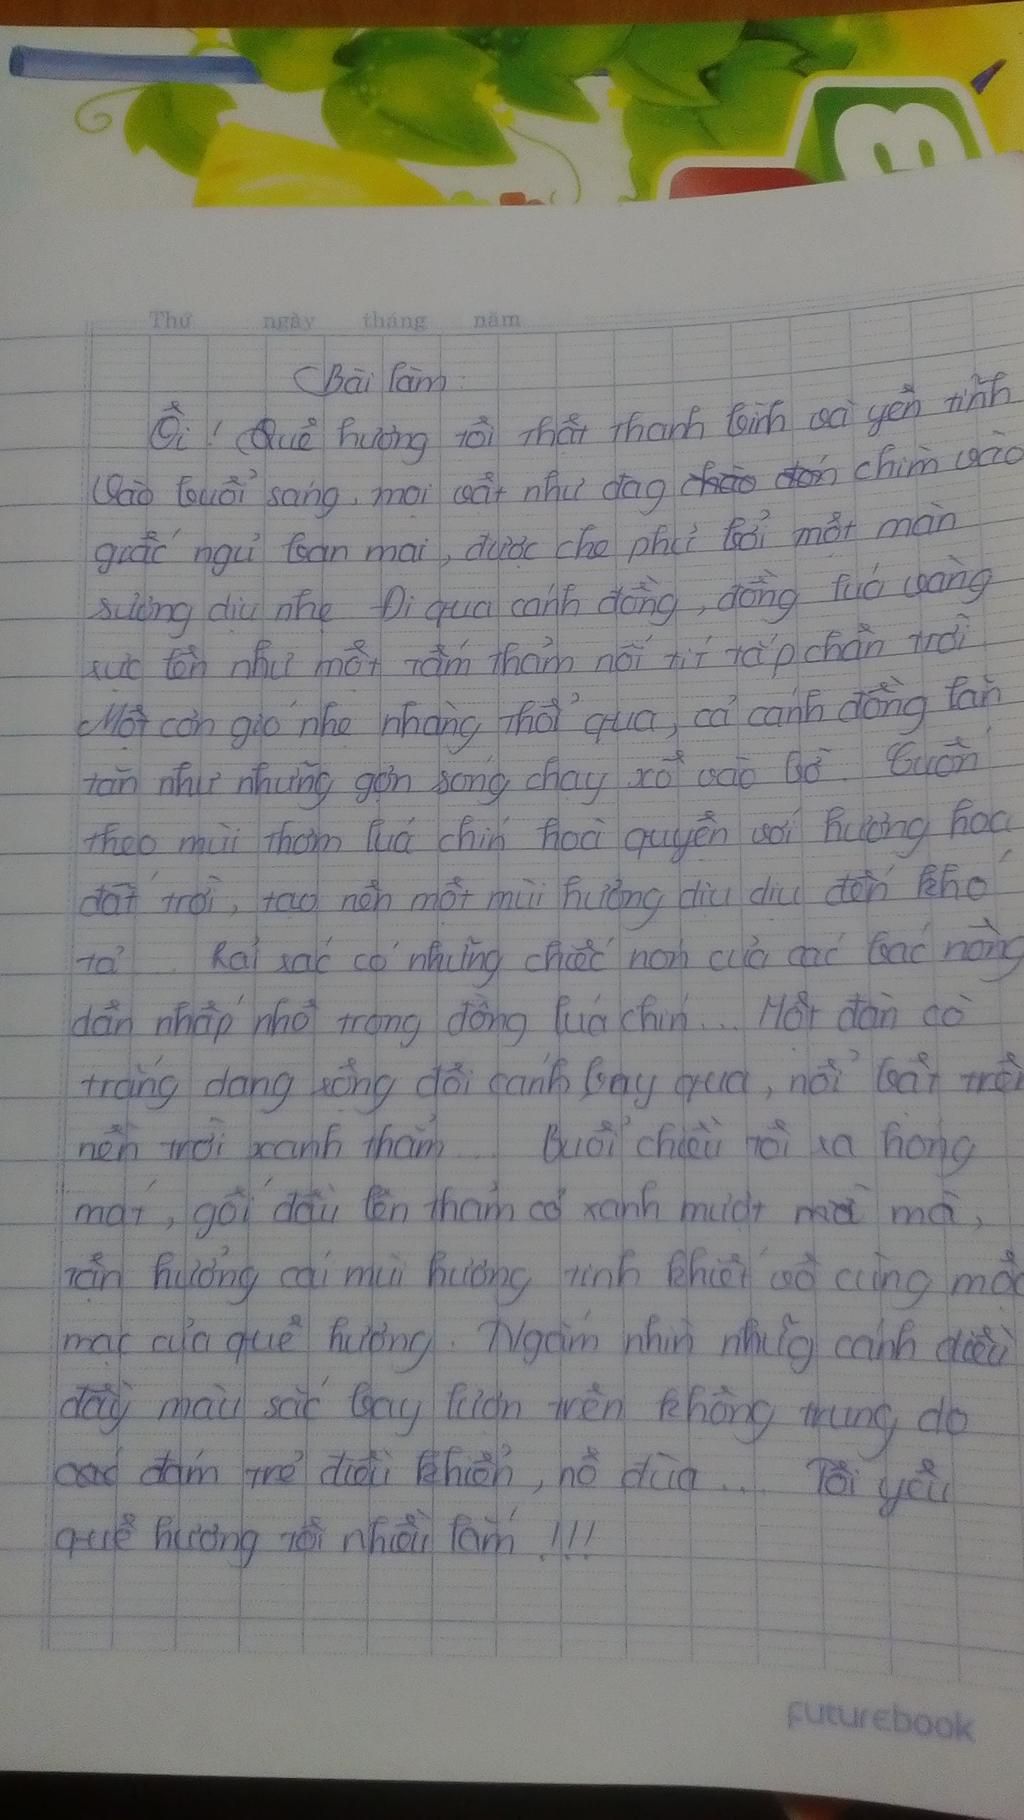 Thứ ngày tháng năm
Bài làm:
Ôi! Quê hương tôi thật thanh bình và yên tĩnh
Vào buổi sáng, mọi vật như đag chào đón chìm vào
giấc ngủ ban mai, được che phủ bởi một màn
sương dịu nhẹ. Đi qua cánh đồng, đồng lúa vàng
rực lên như một tấm thảm nối tít tắp chân trời.
Một cơn gió nhẹ nhàng thổi qua, cả cánh đồng lan
tản như những gợn sóng chạy xô vào bờ. Cuốn
theo mùi thơm lúa chín hoà quyện với hương hoa
đất trời, tạo nên một mùi hương dịu dịu đến khó
tả... Rải rác có những chiếc nón của các bác nông
dân nhấp nhô trong đồng lúa chín... Một đàn cò
trắng dang rộng đôi cánh bay qua, nổi bật trên
nền trời xanh thẳm... Buổi chiều tôi ra hóng
mát, gối đầu lên thảm cỏ xanh mượt mà mà,
tận hưởng cái mùi hương tinh khiết vô cùng mộc
mạc của quê hương. Ngắm nhìn những cánh diều
đầy màu sắc bay lượn trên không trung do
các đám trẻ điều khiển, nô đùa... Tôi yêu
quê hương tôi nhiều lắm!!!
futurebook